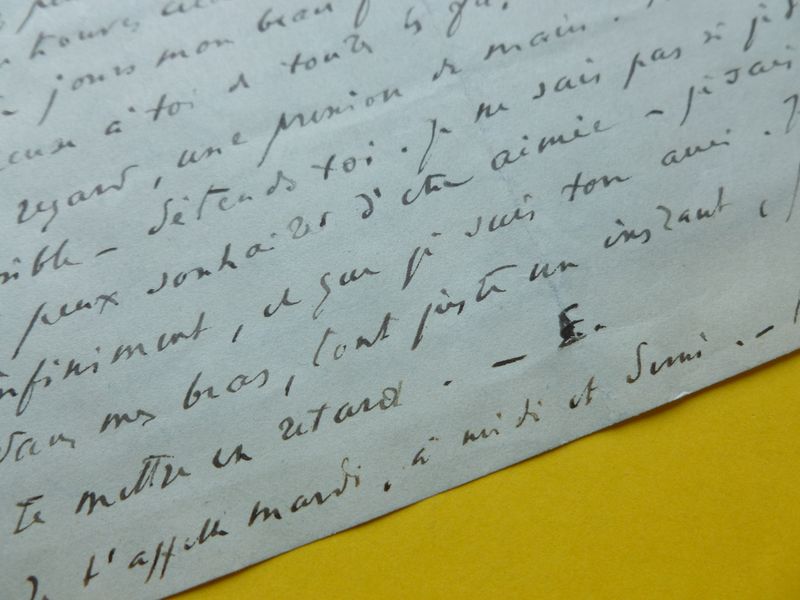 jours mon beau
à toi de toutes les
regard, une pression de main.
détends toi. Je ne sais pas si je
peux souhaiter d'être aimée – je sais
infiniment, et que je suis ton amie.
dans mes bras, tout juste un instant,
te mettre en retard. – E.
Je t'appelle mardi, à midi et demi. –